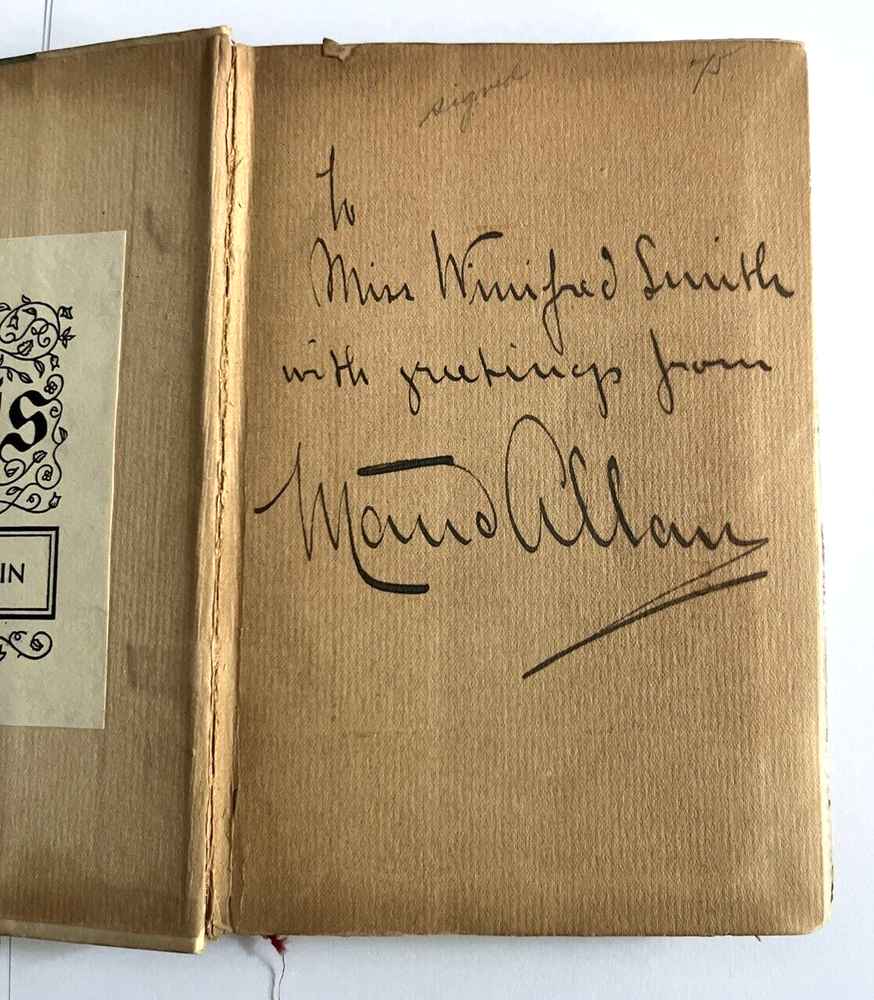 's
IN
signed
7/5
To
Miss Winifred Smith
with greetings from
Maud Allan